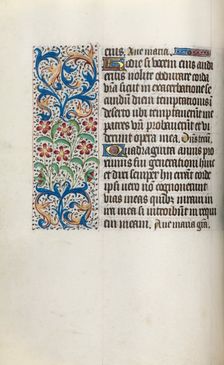 eius. Aue maria.
Hodie si vocem eius audi
eritis nolite obdurare corda
vr̄a sicut in exacerbatione se
cundū diem temptationis ī
deserto vbi temptauerūt me
patres vr̄i probauerūt et vi
derunt opera mea. Dn̄s tecū.
Quadraginta annis pro
ximus fui generationi huic
et dixi semper hii errāt corde
ipsi vero nō cognouerunt
vias meas quibꝫ iuraui in
ira mea si introibūt in requi
em meam. Aue maria gr̄a.